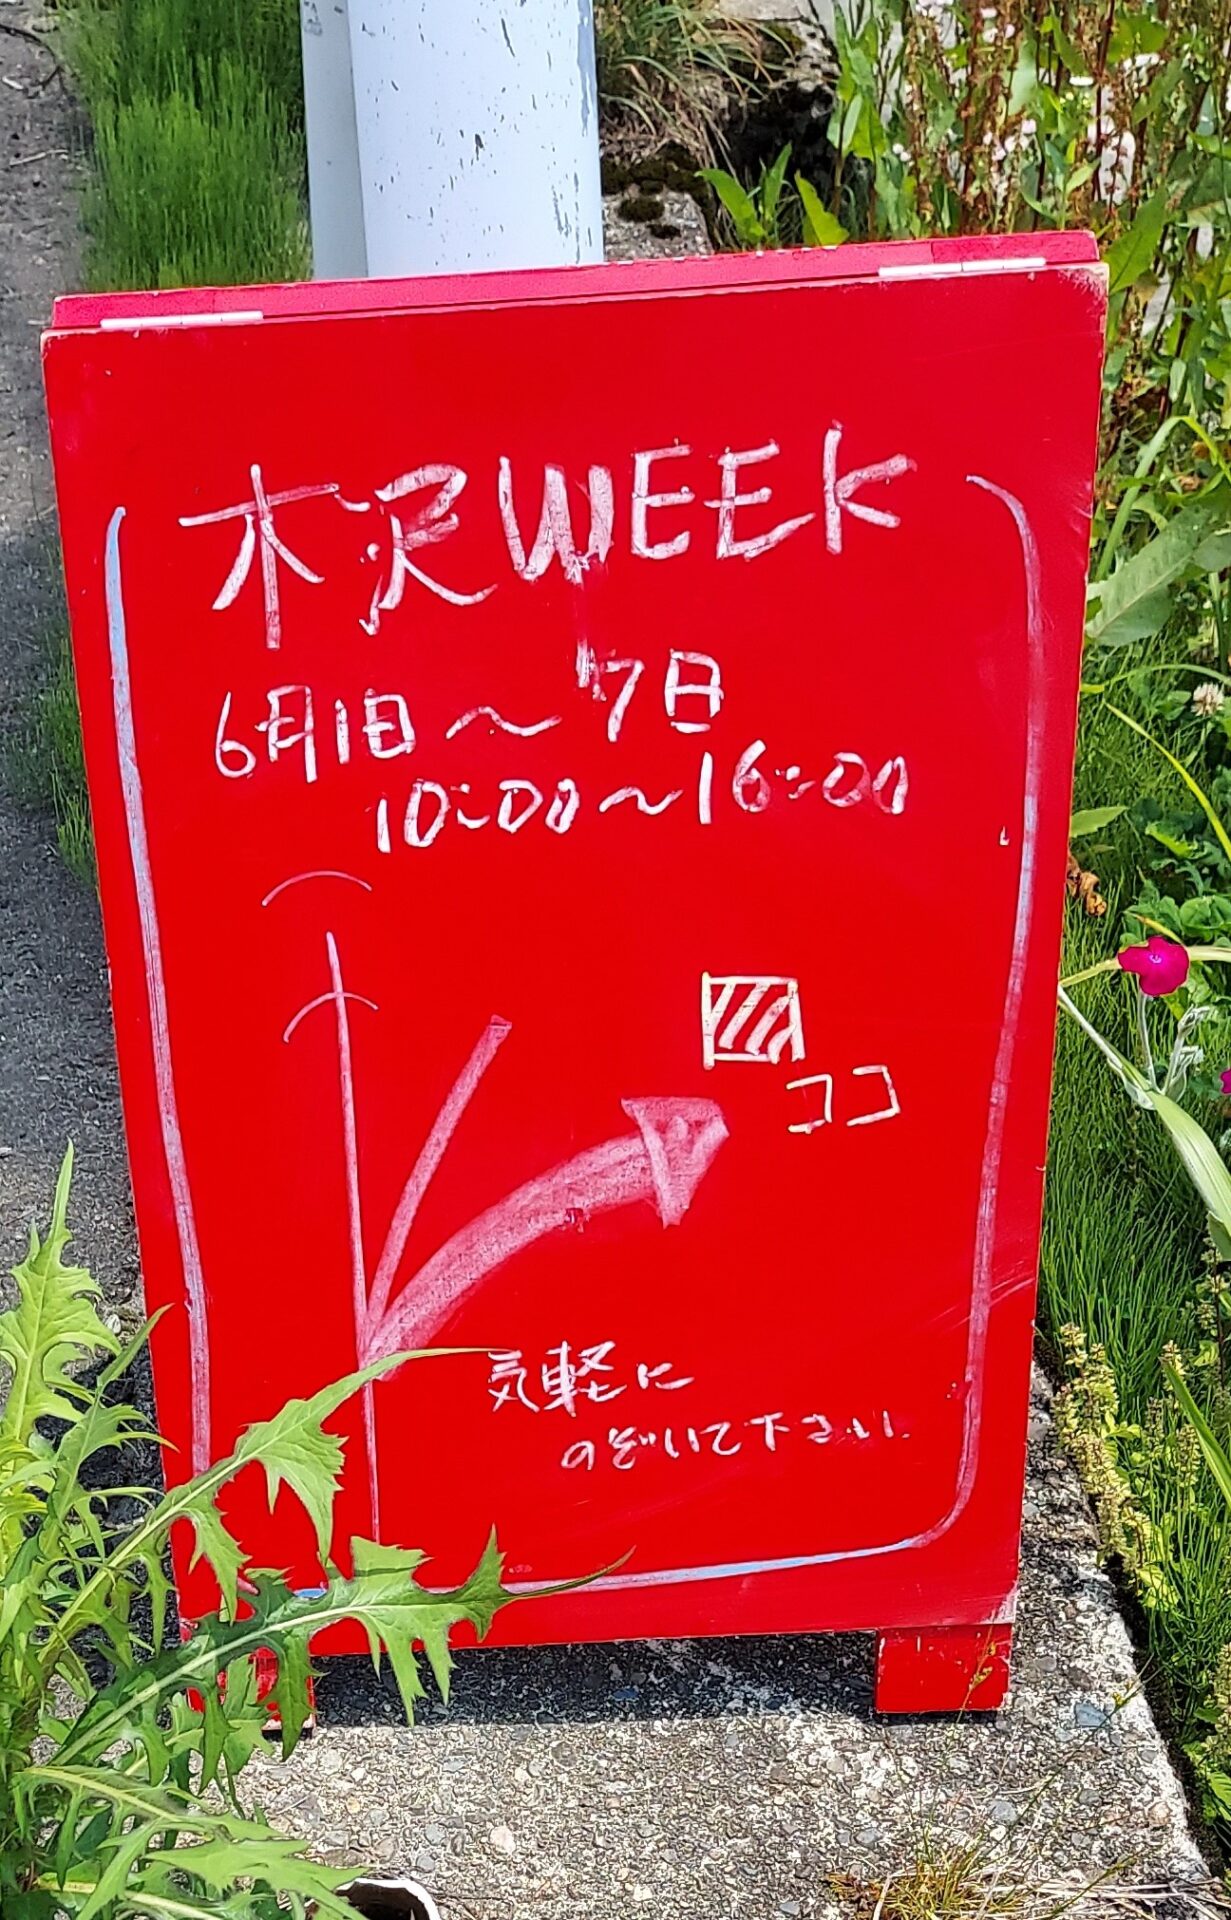 木沢WEEK
6月1日～7日
10:00～16:00
ココ
気軽に
のぞいて下さい.